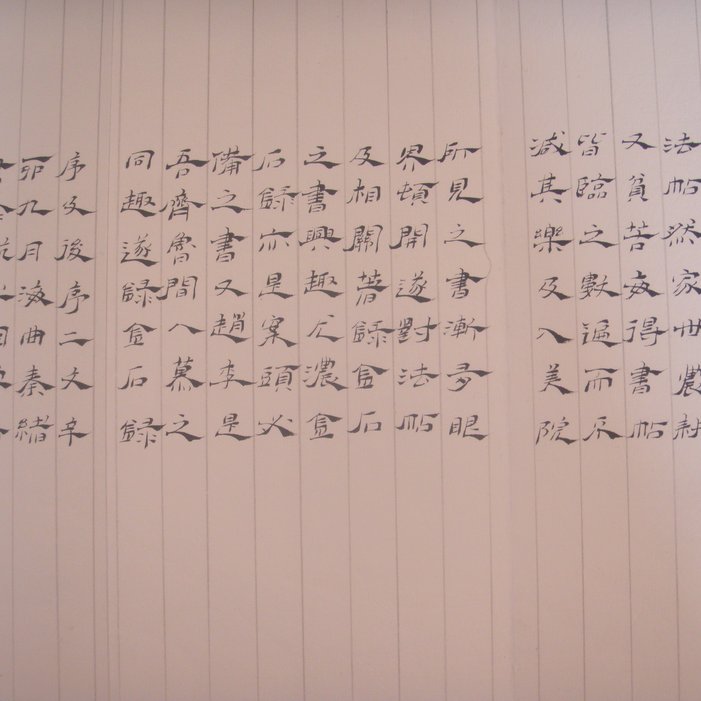 法帖然家世農耕
又貧苦每得書帖
皆臨之數遍而不
减其樂及入美院
所見之書漸多眼
界頓開遂對法帖
及相關著録金石
之書興趣尤濃金
石録亦是案頭必
備之書又趙李是
吾齊魯間人慕之
同趣遂録金石録
序及後序二文辛
卯九月海曲秦緒